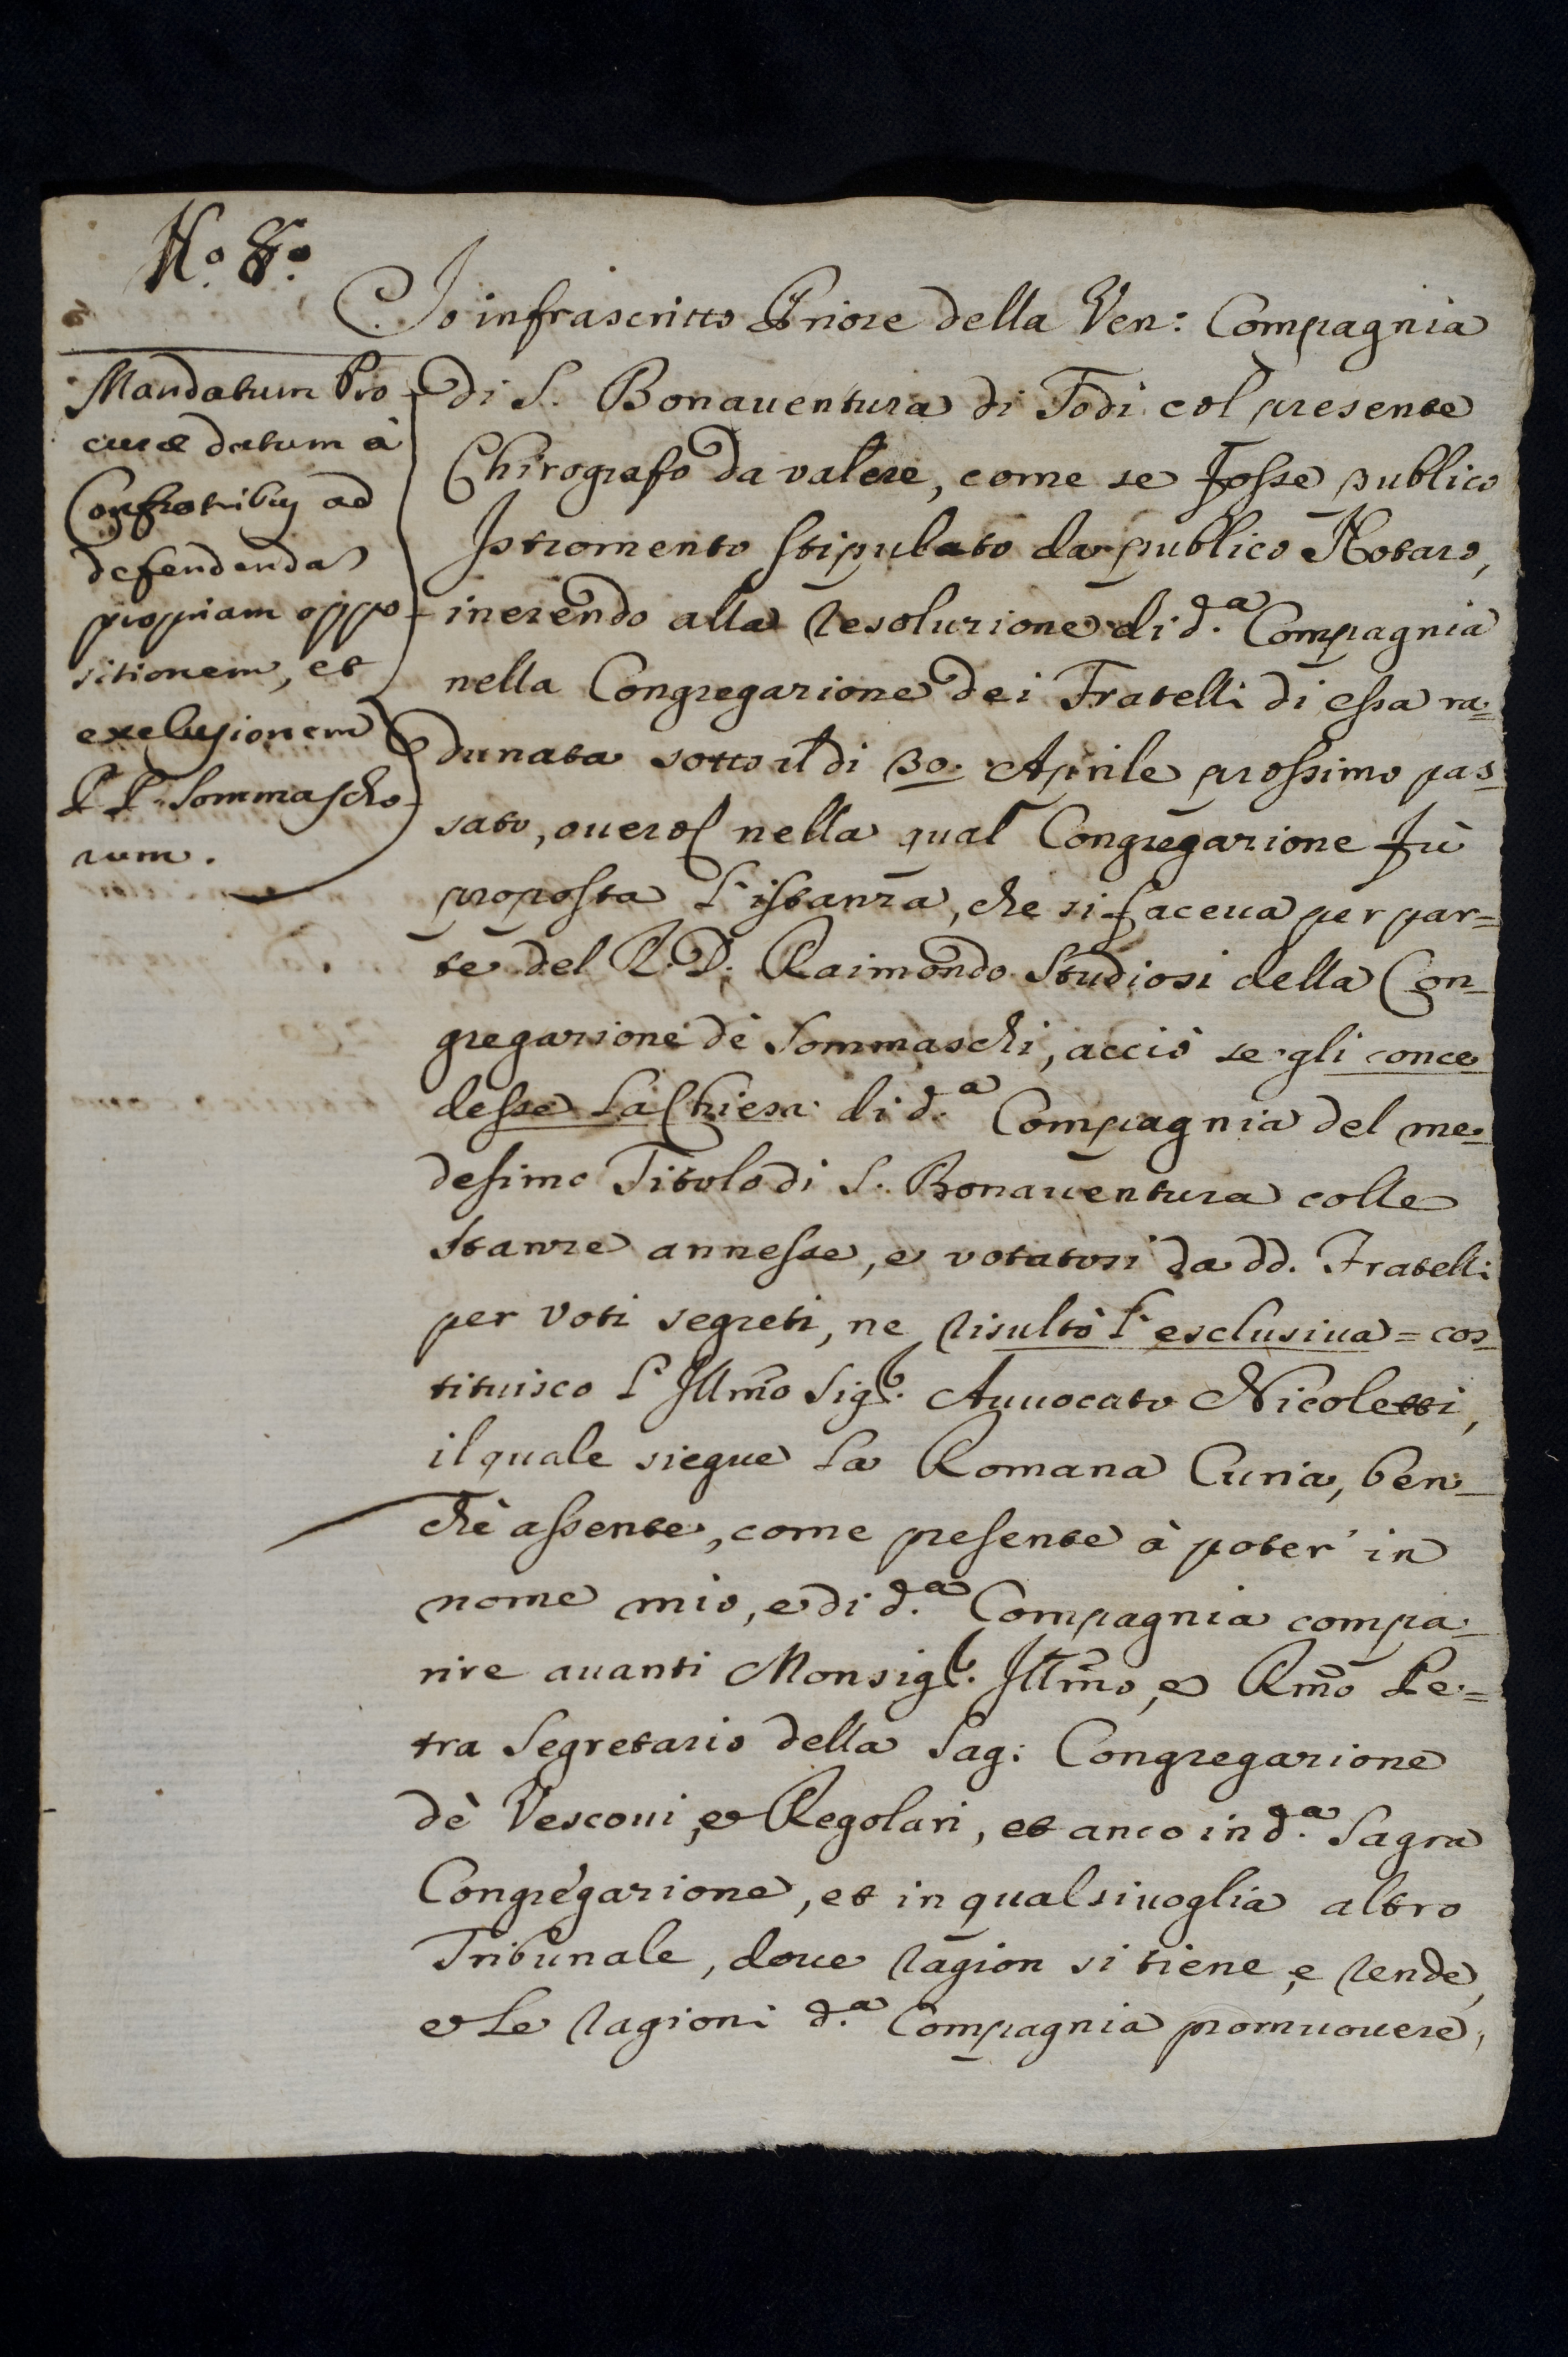 N.o 8.o
Mandatum Pro
curæ datum à
Confratribus ad
defendendam
propriam oppo
sitionem, et
exclusionem
P. P. Sommascho
rum.
Io infrascritto Priore della Ven: Compagnia
di S. Bonauentura di Todi col presente
Chirografo da valere, come se fosse publico
Istromento stipulato da publico Notaro,
inerendo alla resoluzione di d.a Compagnia
nella Congregazione dei Fratelli di essa ra=
dunata sotto il di 30. Aprile prossimo pas=
sato, ouero nella qual Congregazione fù
proposta l'istanza, che si faceua per par=
te del P. D. Raimondo Studiosi della Con=
gregazione dè Sommaschi, acciò se gli conce
desse la Chiesa di d.a Compagnia del me=
desimo Titolo di S. Bonauentura colle
stanze annesse, e votatosi da dd. Fratelli
per voti segreti, ne risultò l'esclusiua = cos=
tituisco l'Illmo Sig.r Auuocato Nicoletti,
il quale siegue la Romana Curia, ben=
chè assente, come presente à poter' in
nome mio, e di d.a Compagnia compa=
rire auanti Monsig.r Illmo, e Rmo Pe=
tra Segretario della Sag: Congregazione
dè Vescoui, e Regolari, et anco in d.a Sagra
Congregazione, et in qualsiuoglia altro
Tribunale, doue ragion si tiene, e rende,
e le ragioni d.a Compagnia promuouere,